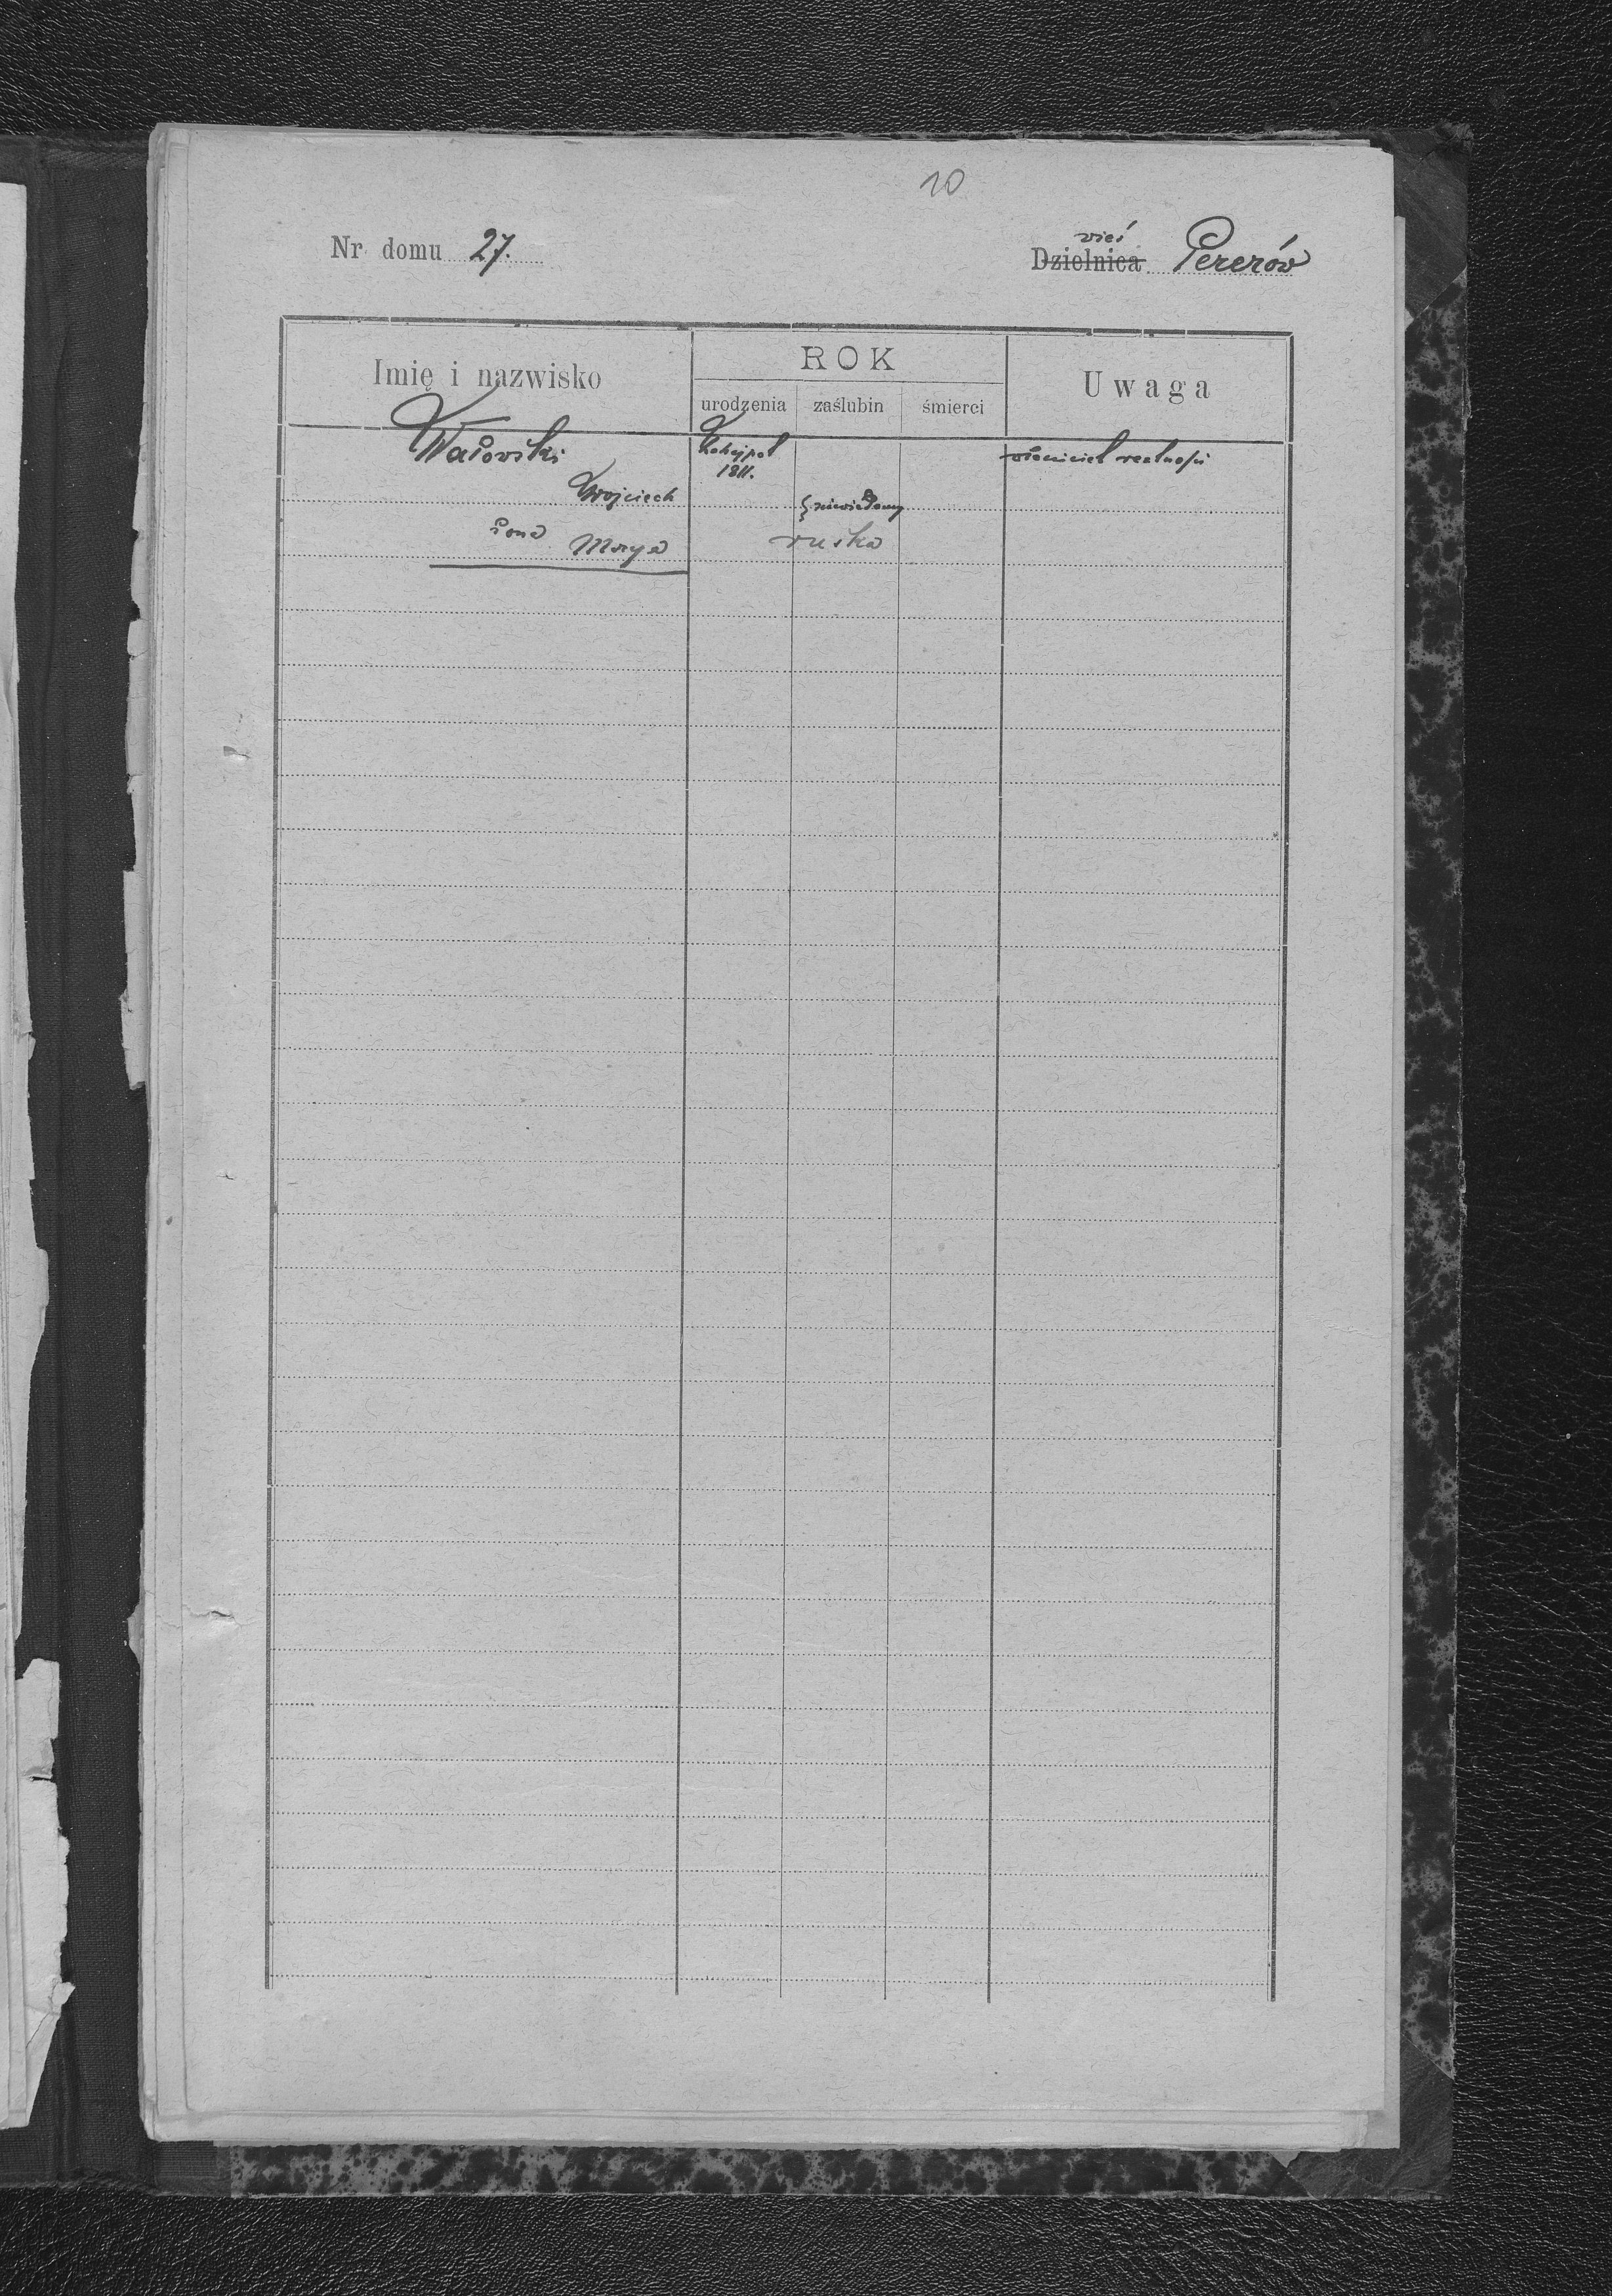 10
Nr domu 27.
wieś
Dzielnica Pererów
Imię i nazwisko
ROK
urodzenia zaślubin śmierci
Uwaga
1811.
właściciel realności
Wojciech
niewiadomy
żona Marya
ruska